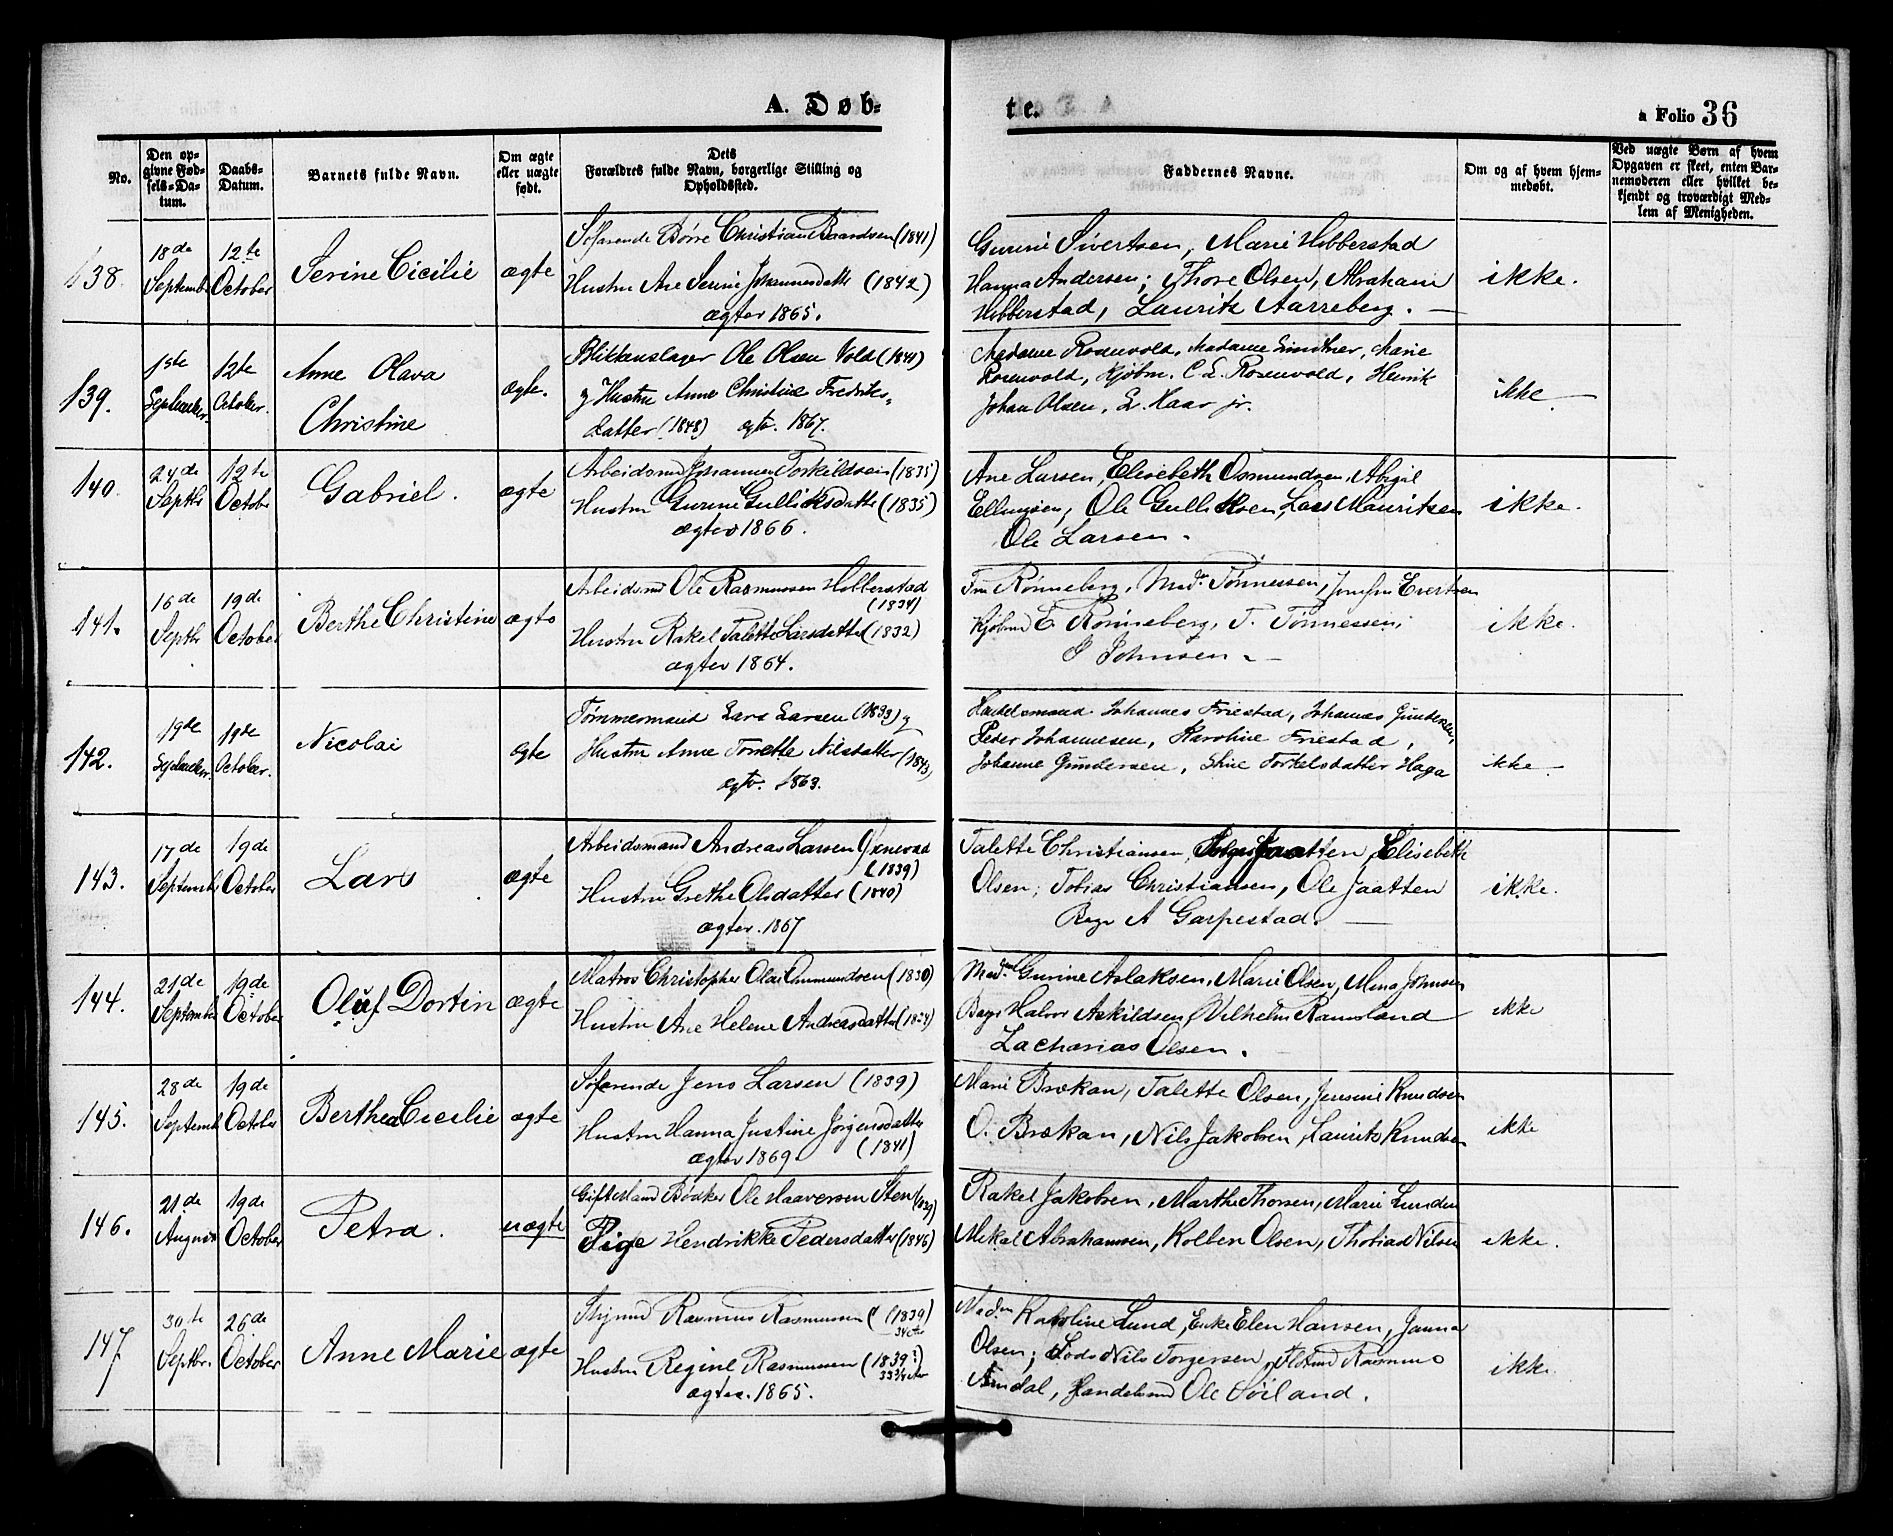 A. Døb-
te.
a Folio 36
No.
Den op-
givne Fød-
sels-Da-
tum.
Daabs-
Datum.
Barnets fulde Navn.
Om ægte
eller uægte
født.
Dets
Forældres fulde Navn, borgerlige Stilling og
Opholdssted.
Faddernes Navne.
Om og af hvem hjem-
medøbt.
Ved uægte Børn af hvem
Opgaven er skeet, enten Bar-
nemoderen eller hvilket be-
kjendt og troværdigt Med-
lem af Menigheden.
138.
18de
Septemb
12te
October
Serine Cicilie
ægte
Søfarende Børre Christian Baardsen (1841)
Hustru Ane Serine Johannesdatter (1842)
ægtev 1865.
Gurine Sivertsen, Marie Hebberstad
Hanna Andersen; Thore Olsen, Abraham
Hebberstad, Lauritz Aarreberg.
ikke.
139.
1ste
September.
12te
October.
Anne Olava
Christine
ægte.
Blikkenslager Ole Olsen Vold (1841)
g Hustru Anne Christine Fredriks-
datter (1848) egtv. 1867.
Madame Rosenvold, Madame Lindtner, Marie
Rosenvold, Kjøbm. C. L. Rosenvold, Henrik
Johan Olsen, L. Haar jr.
ikke
140.
24de
Septbr
12te
October
Gabriel.
ægte
Arbeidsmd Johannes Torkildsen (1835)
Hustru Gurine Gulliksdatter (1835)
ægtev 1866.
Ane Larsen, Elisebeth Osmundsen, Abigil
Ellingsen, Ole Gulliksen, Lars Mauritsen
Ole Larsen.
ikke.
141.
16de
Septbr
19de
October
Berthe Christine
ægte
Arbeidsmd Ole Rasmussen Hebberstad
(1834)
Hustru Rakel Talette Larsdatter (1832)
ægtev 1864.
Fru Rønneberg, Mad. Tønnessen, Jomfru Evertsen
Kjøbmd E Rønneberg, T. Tønnessen,
P Johnsen.
ikke.
142.
19de
September.
19de
October.
Nicolai
ægte
Tømmermand Lars Larsen (1833) g
Hustru Anne Torrette Nilsdatter (1843)
egtv. 1863.
Handelsmand Johannes Friestad, Johannes Gundersen,
Peder Johannesen, Karoline Friestad,
Johanne Gundersen, Stine Torkelsdatter Haga
ikke
143.
17de
Septemb
19de
October
Lars
ægte
Arbeidsmand Andreas Larsen Øxnevad
(1839)
Hustru Grethe Olsdatter (1840)
ægtev. 1867
Talette Christiansen, Jaatten, Elisebeth
Olsen; Tobias Christiansen, Ole Jaatten
Bager A Garpestad.
ikke.
144.
21de
September
19de
October
Oluf Dortin
ægte
Matros Christopher Olai Ommundsen (1830)
Hustru Ane Helene Andreasdatter (1834)
Madm Gurine Aslaksen, Marie Olsen, Mina Johnsen
Bager Halvor Askildsen, Vilhelm Ramsland
Zacharias Olsen.
ikke
145.
28de
Septemb
19de
October
Berthea Cecilie
ægte
Søfarende Jens Larsen (1839)
Hustru Hanna Justine Jørgensdatter
ægtev 1869. (1841)
Marie Brekan, Talette Olsen, Jensine Knudsen
O. Brekan, Nils Jakobsen, Laurits Knudsen
ikke
146.
21de
August
19de
October
Petra.
uægte
Gift Mand Bødker Ole Haaversen Sten
Pige Hendrikke Pedersdatter (1846)
Rakel Jakobsen, Marthe Thorsen, Marie Lunden
Mikal Abrahamsen, Kolben Olsen, Thobias Nilsen
ikke.
147.
30te
Septbr.
26de
October
Anne Marie
ægte
Rasmus Rasmussen (1839)
Hustru Regine Rasmussen (1839
ægtev. 1865.
Madm Karoline Lund, Enke Elen Hansen, Janna
Olsen; Nils Torgersen, Rasmus
Arndal, Handelsmd Ole Søiland.
ikke.